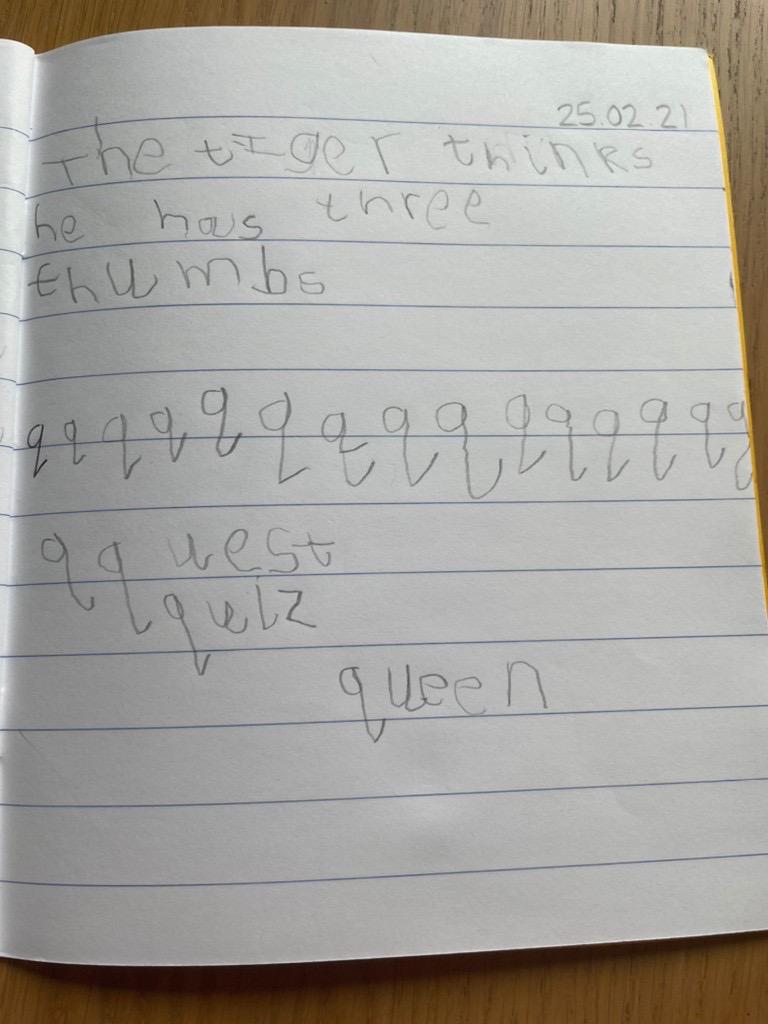 25.02.21
The tIger thinks
he has three
thumbs
q q q q q q q q q q q q q q q
q q uest
queiz
queen